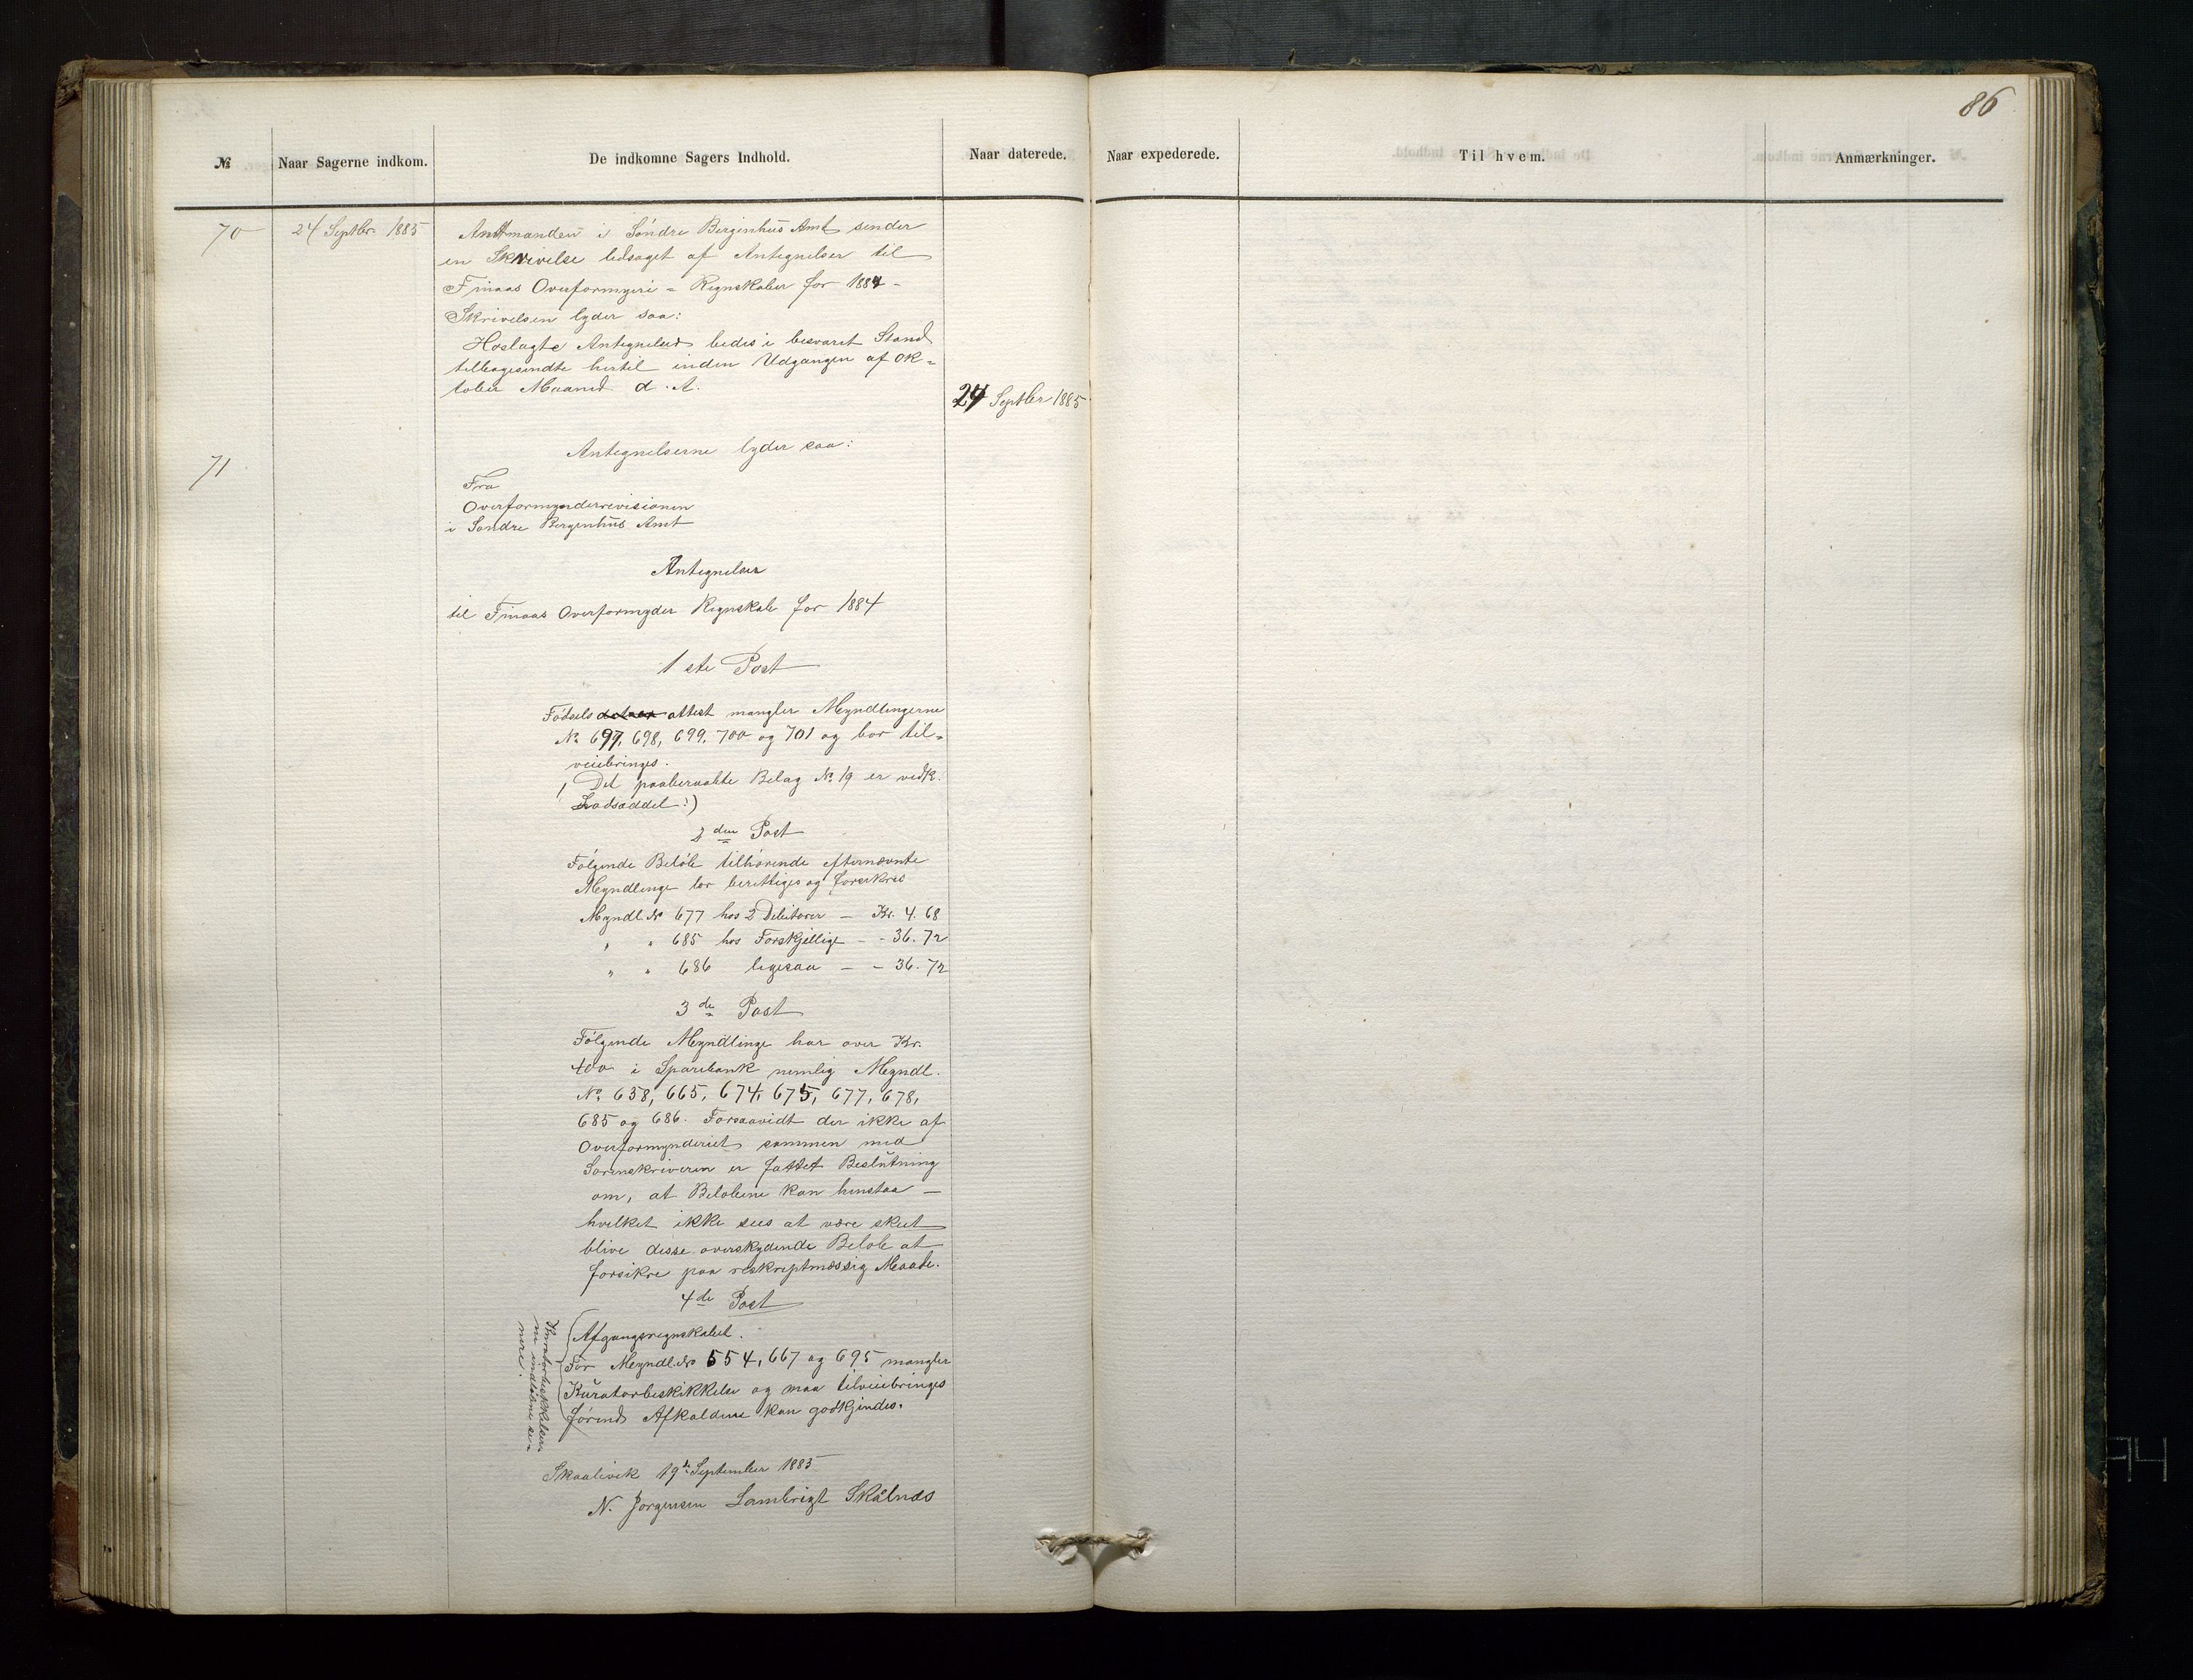 86
№ Naar Sagerne indkom. De indkomne Sagers Indhold. Naar daterede. Naar expederede. Til hvem. Anmærkninger.
70 24 Septbr. 1885 Amtmanden i Søndre Bergenhus Amt sender
en Skrivelse ledsaget af Antegnelser til
Finaas Overformyeri = Regnskaber for 1884 -
Skrivelsen lyder saa:
Hoslagte Antegnelser bedes i besvaret Stand
tilbagesendte hertil inden Udgangen af Ok=
tober Maaned d. A.
24 Septber 1885
71 Antegnelserne lyder saa:
Fra
Overformynderrevisionen
i Søndre Bergenhus Amt
Antegnelser
til Finaas Overformyder Regnskab for 1884
1ste Post
Fødsels attest mangler Myndlingerne
№ 697, 698, 699, 700 og 701 og bør til=
veiebringes.
( Det paaberaabte Belag № 19 er vedk.
Lodseddel :)
2den Post
Følgende Beløb tilhørende efternævnte
Myndlinge bør berettiges og forsikres
Myndl. № 677 hos 2 Debitorer — Kr. 4.68
" " 685 hos Forskjellige - - 36.72
" " 686 ligesaa — - 36.72
3de Post
Følgende Myndlinge har over Kr.
400 i Sparebank nemlig Myndl.
№ 658, 665, 674, 675, 677, 678,
685 og 686. Forsaavidt der ikke af
Overformynderiet sammen med
Sorenskriveren er fattet Beslutning
om, at Beløbene kan henstaa —
hvilket ikke sees at være skeet
blive disse overskydende Beløb at
forsikre paa reskriptmæssig Maade.
4de Post
Afgangsregnskabet.
For Myndl. № 554, 667 og 695 mangler
Kuratorbeskikkelse og maa tilveiebringes
førend Afkaldene kan godkjendes.
Kuratorbeskikkelser
ne indløbne se=
nere.
Skaalevik 19de September 1885
N. Jørgensen Lambrigt Skålnæs